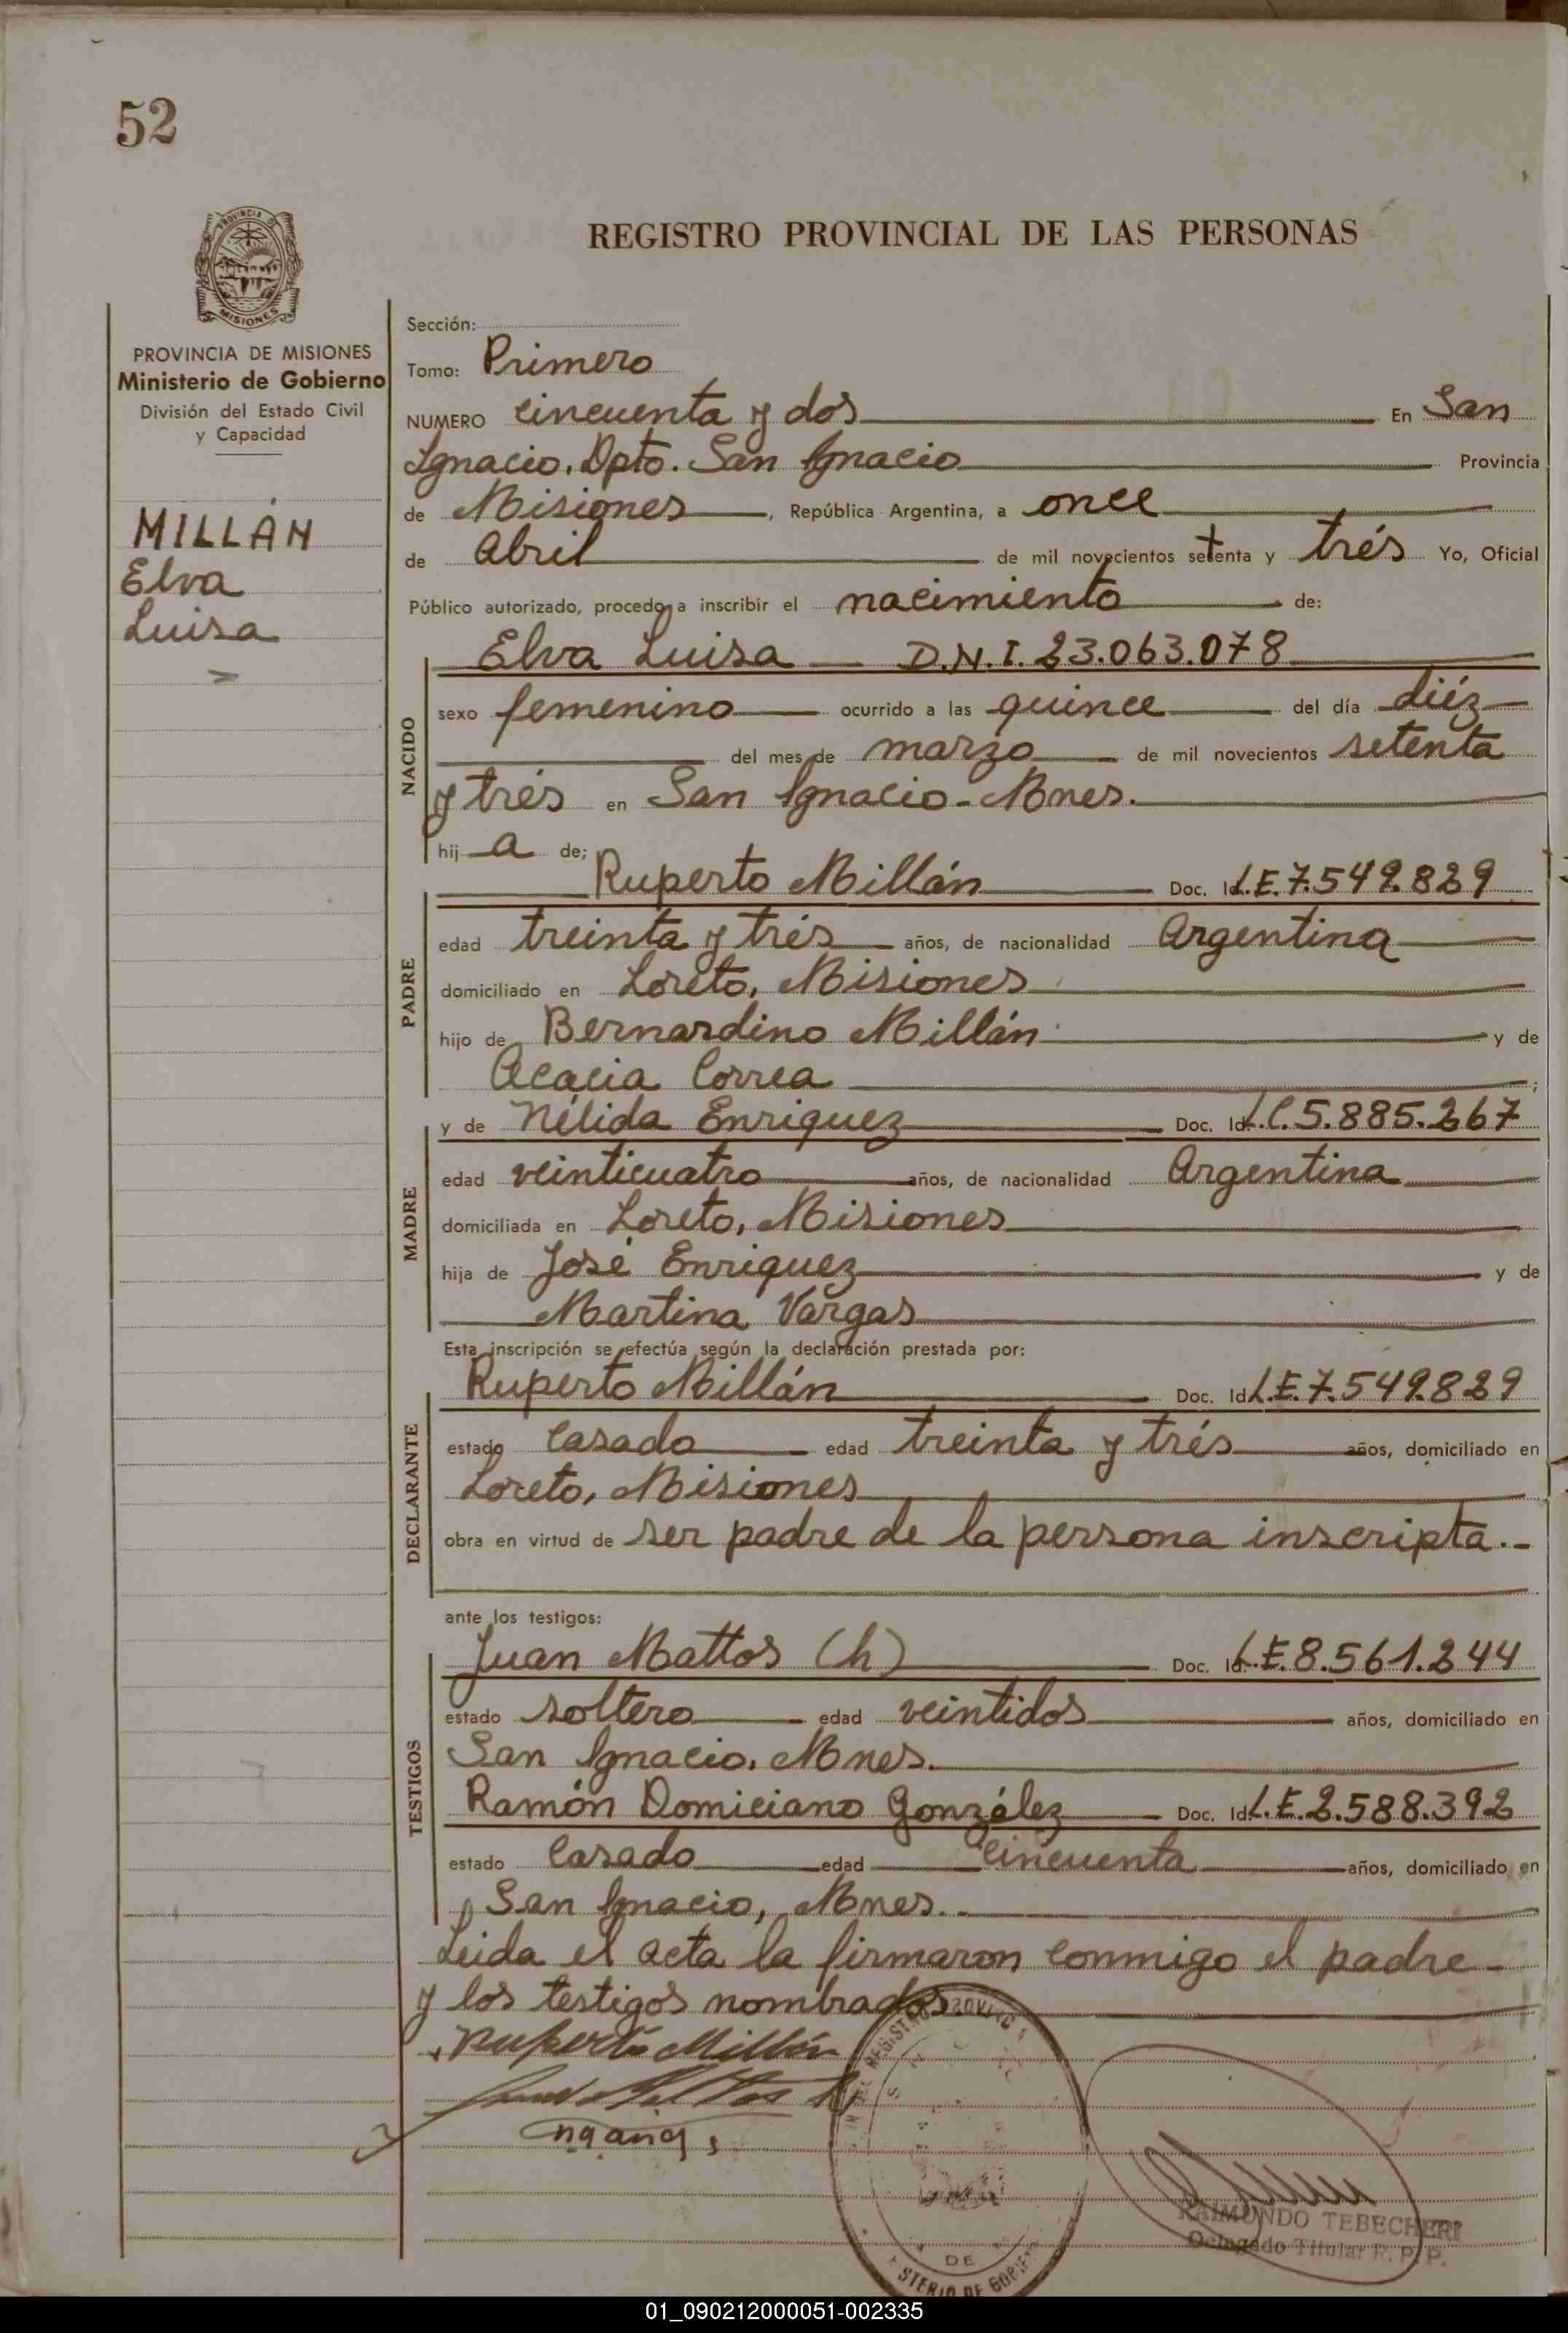 52
REGISTRO PROVINCIAL DE LAS PERSONAS
PROVINCIA DE MISIONES
Ministerio de Gobierno
División del Estado Civil
y Capacidad
MILLÁN
Elva
Luisa
Sección:
Tomo: Primero
NUMERO cincuenta y dos En San
Ignacio, Dpto. San Ignacio Provincia
de Misiones, República Argentina, a once
de Abril de mil novecientos setenta y trés Yo, Oficial
Público autorizado, procedo a inscribir el nacimiento de:
NACIDO
Elva Luisa D.N.I. 23.063.078
sexo femenino ocurrido a las quince del día diéz
del mes de marzo de mil novecientos setenta
y trés en San Ignacio - Mnes.
hij a de;
PADRE
Ruperto Millán Doc. Id. L.E. 7.549.829
edad treinta y trés años, de nacionalidad Argentina
domiciliado en Loreto, Misiones
hijo de Bernardino Millán y de
Acacia Correa ;
MADRE
y de Nélida Enriquez Doc. Id. L.C. 5.885.267
edad veinticuatro años, de nacionalidad Argentina
domiciliada en Loreto, Misiones
hija de José Enriquez y de
Martina Vargas
Esta inscripción se efectúa según la declaración prestada por:
DECLARANTE
Ruperto Millán Doc. Id. L.E. 7.549.829
estado casado edad treinta y trés años, domiciliado en
Loreto, Misiones
obra en virtud de ser padre de la persona inscripta.-
ante los testigos:
TESTIGOS
Juan Mattos (h) Doc. Id. L.E. 8.561.244
estado soltero edad veintidos años, domiciliado en
San Ignacio, Mnes.
Ramón Domiciano González Doc. Id. L.E. 2.588.392
estado casado edad cincuenta años, domiciliado en
San Ignacio, Mnes..
Leida el acta la firmaron conmigo el padre
y los testigos nombrados
Ruperto Millán
RAIMUNDO TEBECHERI
Delegado Titular R. P. P.
DE
01_090212000051-002335